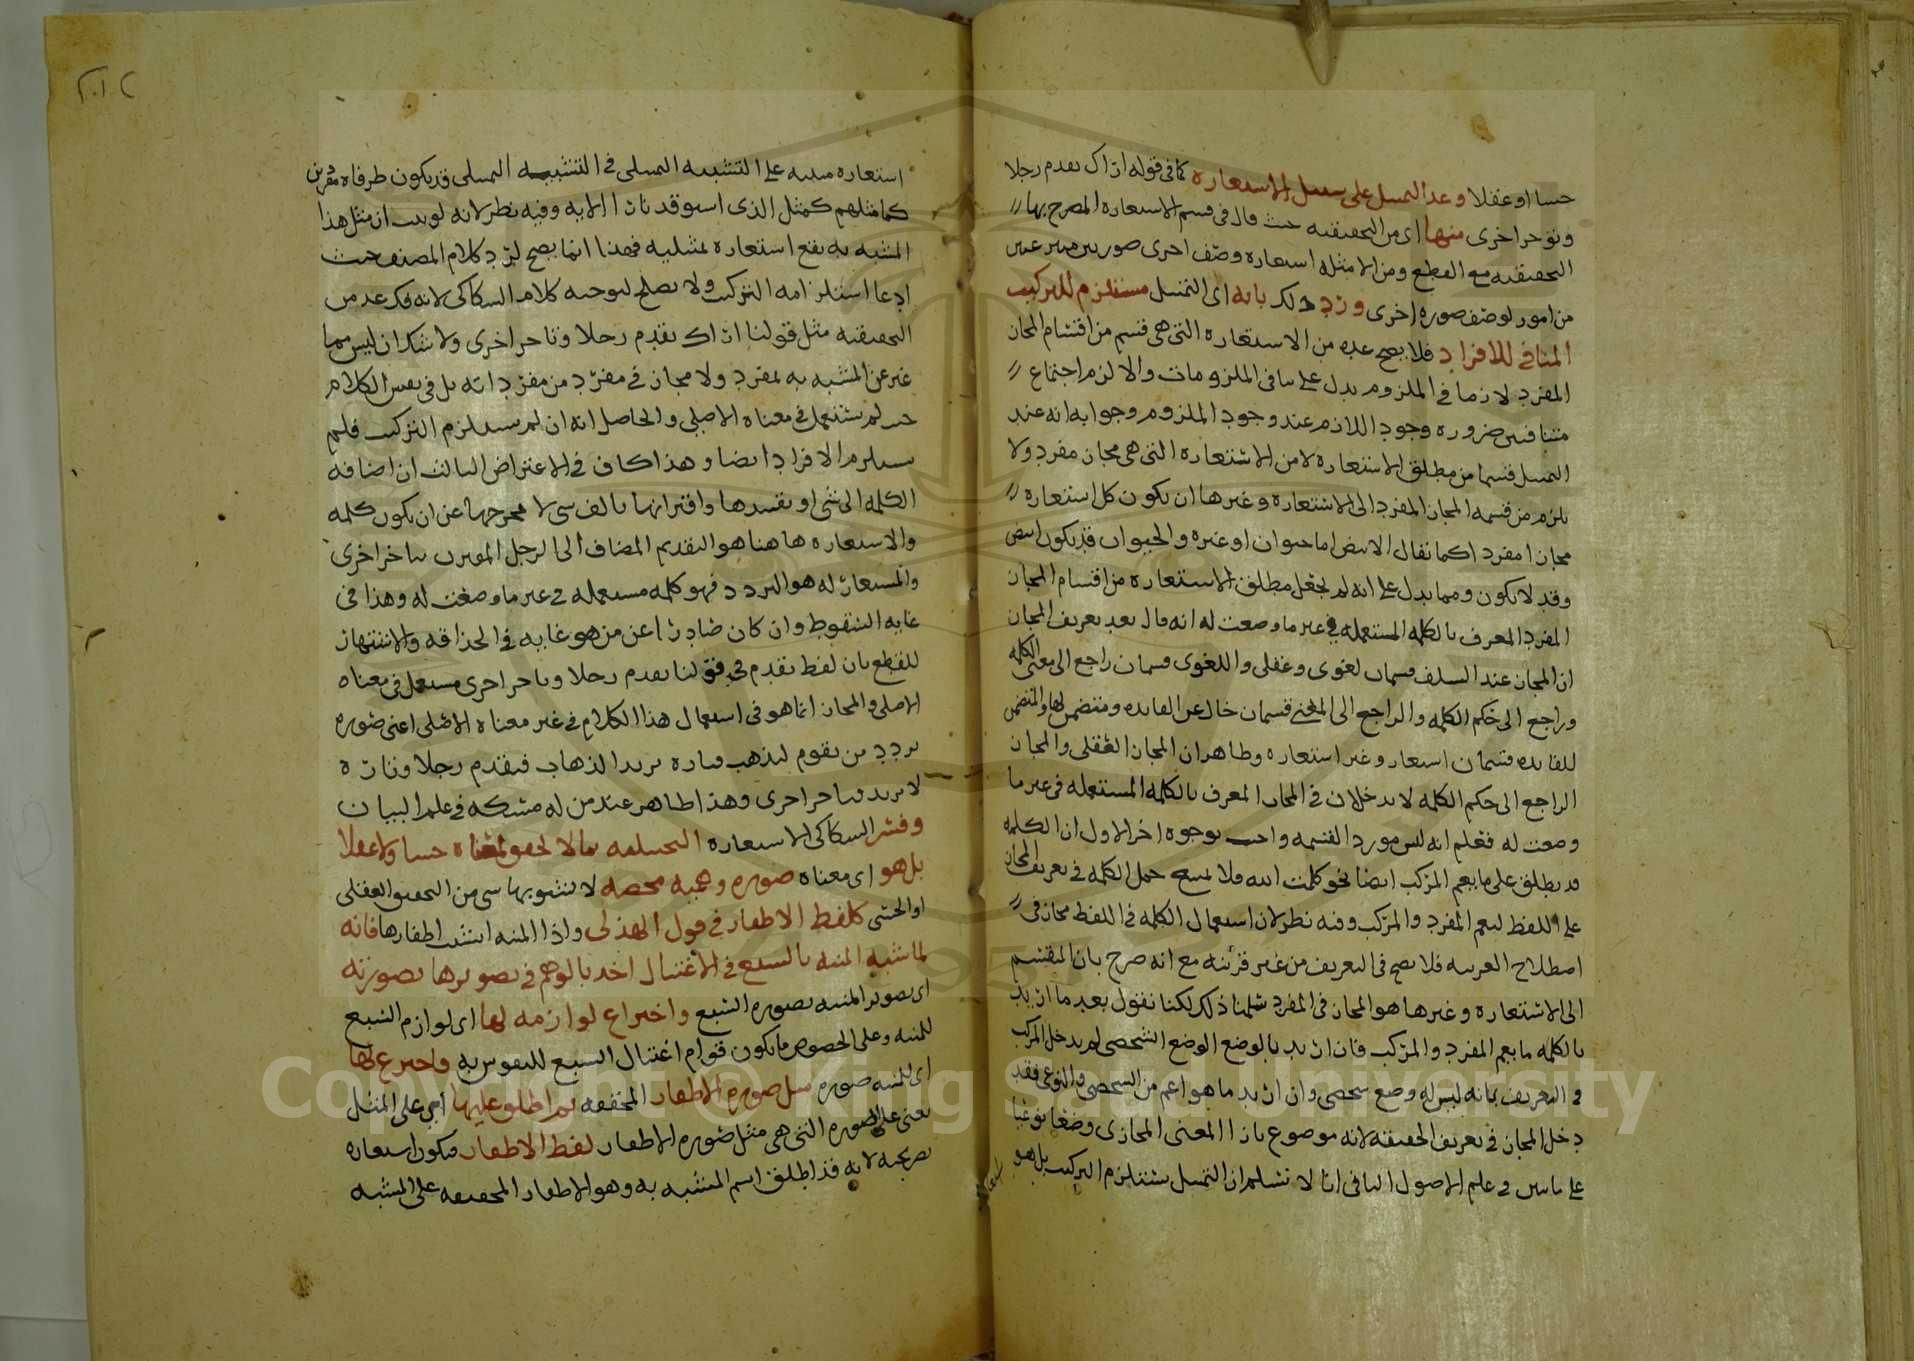 حسا او عقلا وعد التمثيل على سبيل الاستعارة كما في قوله اراك تقدم رجلا
وتوخر اخرى منها اي من التحقيقية حيث قال في قسم الاستعارة المصرح بها
التحقيقية مع القطع ومن الامثلة استعارة وصف احدى صورتين منتزعتين
من امور لوصف صورة اخرى ورد ذلك بانه اي التمثيل مستلزم للتركيب
المنافي للافراد فلا يصح عده من الاستعارة التي هي قسم من اقسام المجاز
المفرد لان تنافي اللوازم يدل على تنافي الملزومات والا لزم اجتماع
متنافيين ضرورة وجود اللازم عند وجود الملزوم وجوابه انه عد
التمثيل قسما من مطلق الاستعارة لا من الاستعارة التي هي مجاز مفرد ولا
يلزم من قسمة المجاز المفرد الى الاستعارة وغيرها ان يكون كل استعارة
مجازا مفردا كما يقال الابيض اما حيوان او غيره والحيوان قد يكون ابيض
وقد لا يكون ومما يدل على انه لم يجعل مطلق الاستعارة من اقسام المجاز
المفرد المعرف بالكلمة المستعملة في غير ما وضعت له انه قال بعد تعريف المجاز
ان المجاز عند السلف قسمان لغوي وعقلي واللغوي قسمان راجع الى معنى الكلمة
وراجع الى حكم الكلمة والراجع الى المعنى قسمان خال عن الفايده ومتضمن لها والمتضمن
للفايده قسمان استعارة وغير استعارة وظاهر ان المجاز العقلي والمجاز
الراجع الى حكم الكلمة لا يدخلان في المجاز المعرف بالكلمة المستعملة في غير ما
وضعت له فعلم انه ليس مورد القسمة واجيب بوجوه اخر الاول ان الكلمة
قد يطلق على ما يعم المركب ايضا نحو كلمت الله فلا يمتنع حمل الكلمة في تعريف المجاز
على اللفظ ليعم المفرد والمركب وفيه نظر لان استعمال الكلمة في اللفظ مجاز في
اصطلاح العربيه فلا يصح في التعريف من غير قرينه مع انه صرح بان المنقسم
الى الاستعارة وغيرها هو المجاز في المفرد سلمنا ذلك لكنا نقول بعد ما اريد
بالكلمة ما يعم المفرد والمركب فان اريد بالوضع الوضع الشخصي لم يدخل المركب
في التعريف بانه ليس له وضع شخصي وان اريد ما هو اعم من الشخصي والنوعي فقد
دخل المجاز في تعريف الحقيقة لانه موضوع بازا المعنى المجازي وضعا نوعيا
على ما بين في علم الاصول الثاني انا لا نسلم ان التمثيل يستلزم التركيب بل هو
استعارة مبنيه على التشبيه التمثيلي في التشبيه التمثيلي قد يكون طرفاه مفردين
كما مثلهم كمثل الذي استوقد نارا الايه وفيه نظر لانه لو ثبت ان مثل هذا
المشبه به يقع استعارة تمثيليه فهذا انما يصح لرد كلام المصنف حيث
ادعا استلزامه التركيب ولا يصلح لتوجيه كلام السكاكي لانه قد عد من
التحقيقيه مثل قولنا اراك تقدم رجلا وتاخر اخرى ولا شك ان ليس مما
عبر عن المشبه به بمفرد ولا مجاز في مفرد من مفرداته بل في نفس الكلام
حيث لم يستعمل في معناه الاصلي والحاصل انه ان لم يستلزم التركيب فلم
يستلزم الافراد ايضا وهذا كاف في الاعتراض الثالث ان اضافة
الكلمة الى شي او تقييدها واقترانها بالف شي لا يخرجها عن ان يكون كلمة
والاستعاره هاهنا هو التقديم المضاف الى الرجل المقترن بتاخر اخرى
والمستعار له هو التردد فهو كلمة مستعملة في غير ما وضعت له وهذا في
غاية السقوط وان كان صادرا عن من هو غاية في الحذاقة والاشتهار
للقطع بان لفظ تقدم في قولنا تقدم رجلا وتاخر اخرى مستعمل في معناه
الاصلي والمجاز انما هو في استعمال هذا الكلام في غير معناه الاصلي اعني صورة
تردد من يقوم ليذهب فتارة يريد الذهاب فيقدم رجلا وتارة
لا يريد فياخر اخرى وهذا ظاهر عند من له مسكة في علم البيان
وفسر السكاكي الاستعارة التخييلية بما لا تحقق لمعناه حسا ولا عقلا
بل هو اي معناه صورة وهمية محضه لا يشوبها شي من التحقق العقلي
او الحسي كلفظ الاظفار في قول الهذلي واذا المنية انشبت اظفارها فانه
لما شبه المنية بالسبع في الاغتيال اخذ بالوهم في تصويرها بصورته
اي تصوير المنية بصورة السبع واختراع لوازمه لها اي لوازم السبع
للمنية وعلى الخصوص ما يكون قوام اغتيال السبع للنفوس به فاخترع لها
اي للمنية صورة مثل صورة الاظفار المحققة ثم اطلق عليها اي على المثل
يعني على الصورة التي هي مثل صورة الاظفار لفظ الاظفار فيكون استعارة
تصريحية لانه قد اطلق اسم المشبه به وهو الاظفار المحققة على المشبه